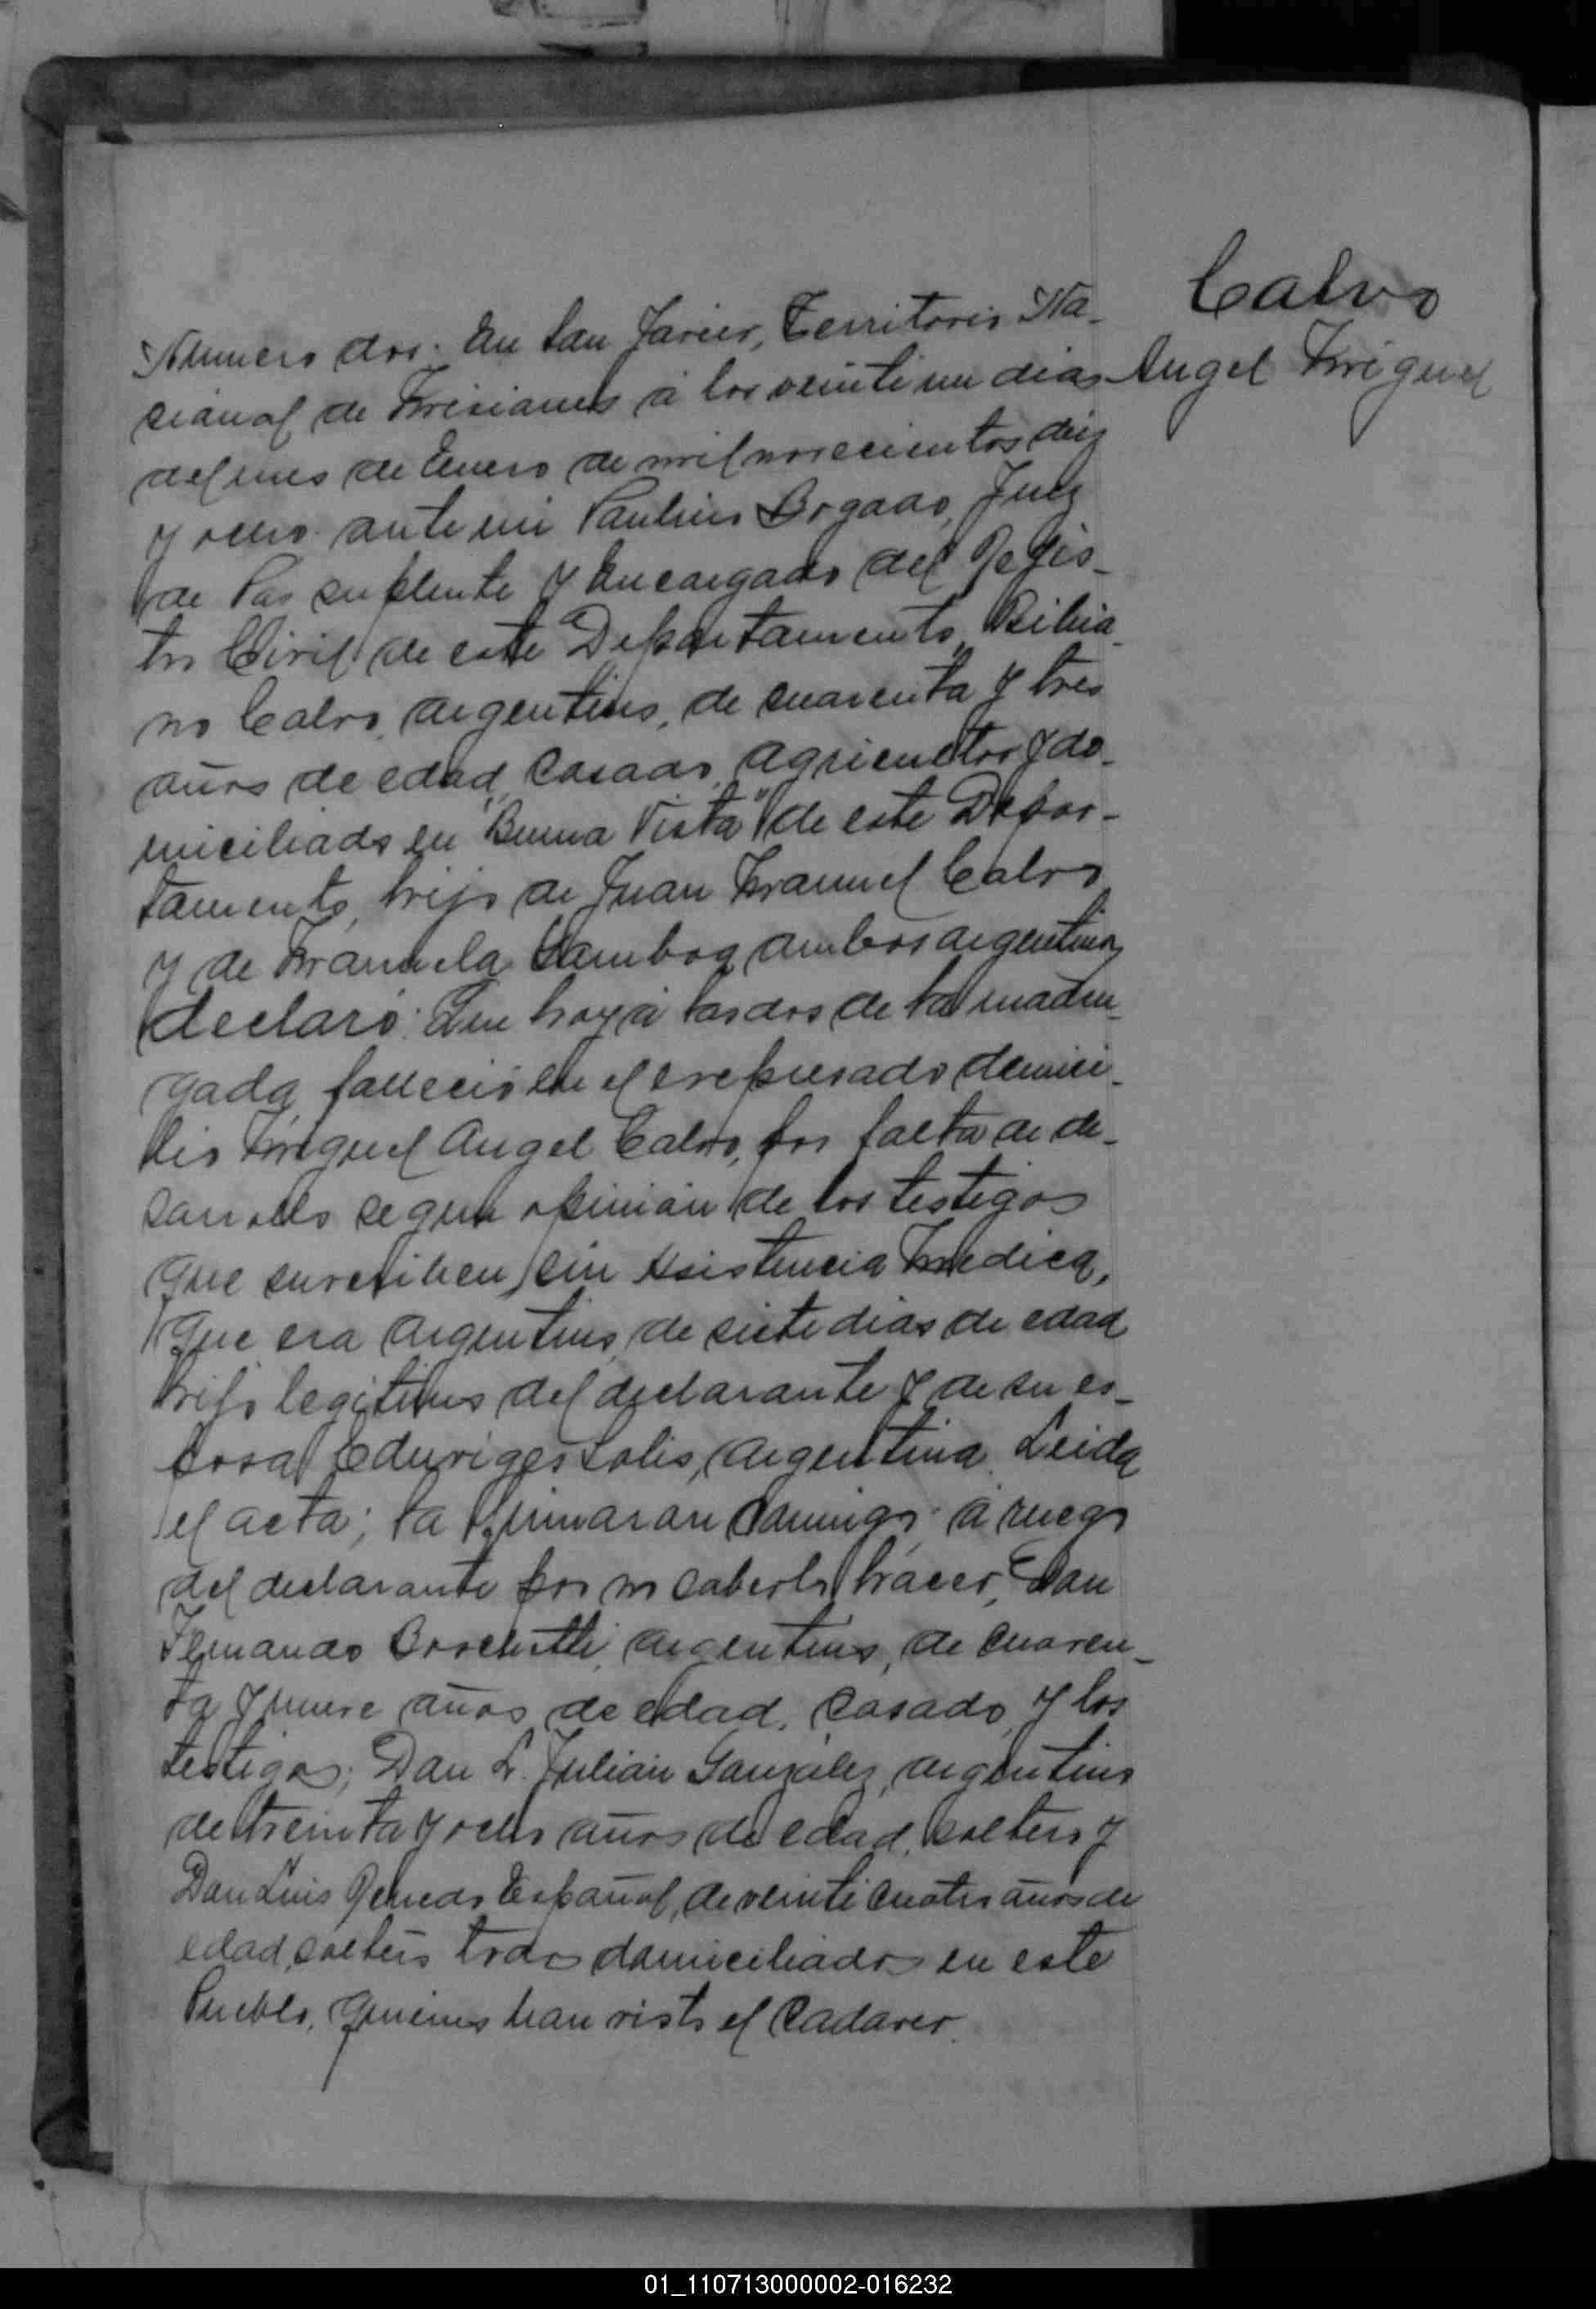 Calvo
Angel Miguel
Numero dos. En San Javier, Territorio Na-
cional de Misiones á los veinti un dias
del mes de Enero de mil novecientos diez
y ocho ante mi Paulino Orgado, Juez
de Paz suplente y Encargado del Regis-
tro Civil de este Departamento, Bibia-
no Calvo, argentino, de cuarenta y tres
años de edad, casado, agricultor y do-
miciliado en "Buena Vista" de este Depar-
tamento, hijo de Juan Manuel Calvo
y de Manuela ambos argentinos
declaró: Que hoy á las dos de la madru-
gada, falleció en el expresado domici-
lio Miguel Angel Calvo, por falta de de-
sarrollo segun opinión de los testigos
que suscriben, sin asistencia Medica,
que era argentino, de siete dias de edad
hijo legitimo del declarante y de su es-
posa Eduviges Solis, argentina. Leida
el acta; la firmaron conmigo; á ruego
del declarante por no saberlo hacer, Don
Fernando argentino, de cuaren-
ta y nueve años de edad, casado, y los
testigos; Don L. Julián González, argentino
de treinta y ocho años de edad, soltero y
Don Luis Español, de veinti cuatro años de
edad, soltero todos domiciliados en este
Pueblo, quienes han visto el Cadaver.
01_110713000002-016232